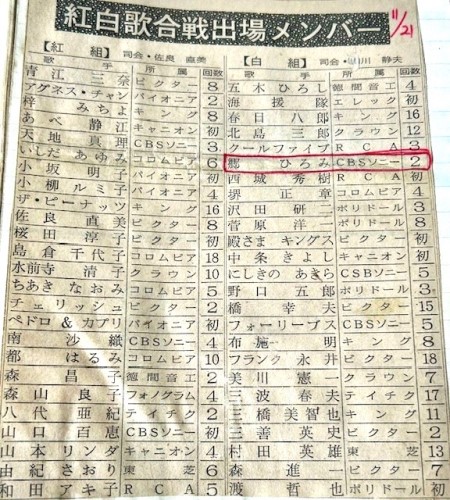 紅白歌合戦出場メンバー
11/21
【紅組】 司会・佐良直美
歌手 所属 回数
青江三奈 ビクター 8
アグネス・チャン パイオニア 2
梓みちよ キング 8
あべ静江 キャニオン 初
天地真理 CBSソニー 3
いしだあゆみ コロムビア 6
小坂明子 パイオニア 初
小柳ルミ子 パイオニア 4
ザ・ピーナッツ キング 16
佐良直美 ビクター 8
桜田淳子 ビクター 初
島倉千代子 コロムビア 18
水前寺清子 クラウン 10
ちあきなおみ コロムビア 5
チェリッシュ ビクター 2
ペドロ&カプリ パイオニア 初
南沙織 CBSソニー 4
都はるみ コロムビア 10
森昌子 徳間音工 2
森山良子 フォノグラム 4
八代亜紀 テイチク 2
山口百恵 CBSソニー 初
山本リンダ キャニオン 4
由紀さおり 東芝 6
和田アキ子 RCA 5
【白組】 司会・川静夫
歌手 所属 回数
五木ひろし 徳間音工 4
海援隊 エレック 初
春日八郎 キング 16
北島三郎 クラウン 12
クールファイブ RCA 3
郷ひろみ CBSソニー 2
西城秀樹 RCA 初
堺正章 コロムビア 4
沢田研二 ポリドール
菅原洋一 ポリドール 8
殿さまキングス ビクター 初
中条きよし キャニオン 初
にしきのあきら CSBソニー 5
野口五郎 ポリドール 3
橋幸夫 ビクター 15
フォーリーブス CBSソニー 5
布施明 キング 8
フランク永井 ビクター 18
美川憲一 クラウン 7
三波春夫 テイチク 17
三橋美智也 キング 11
三善英史 ビクター 2
村田英雄 東芝 13
森進一 ビクター 7
渡哲也 ポリドール 初